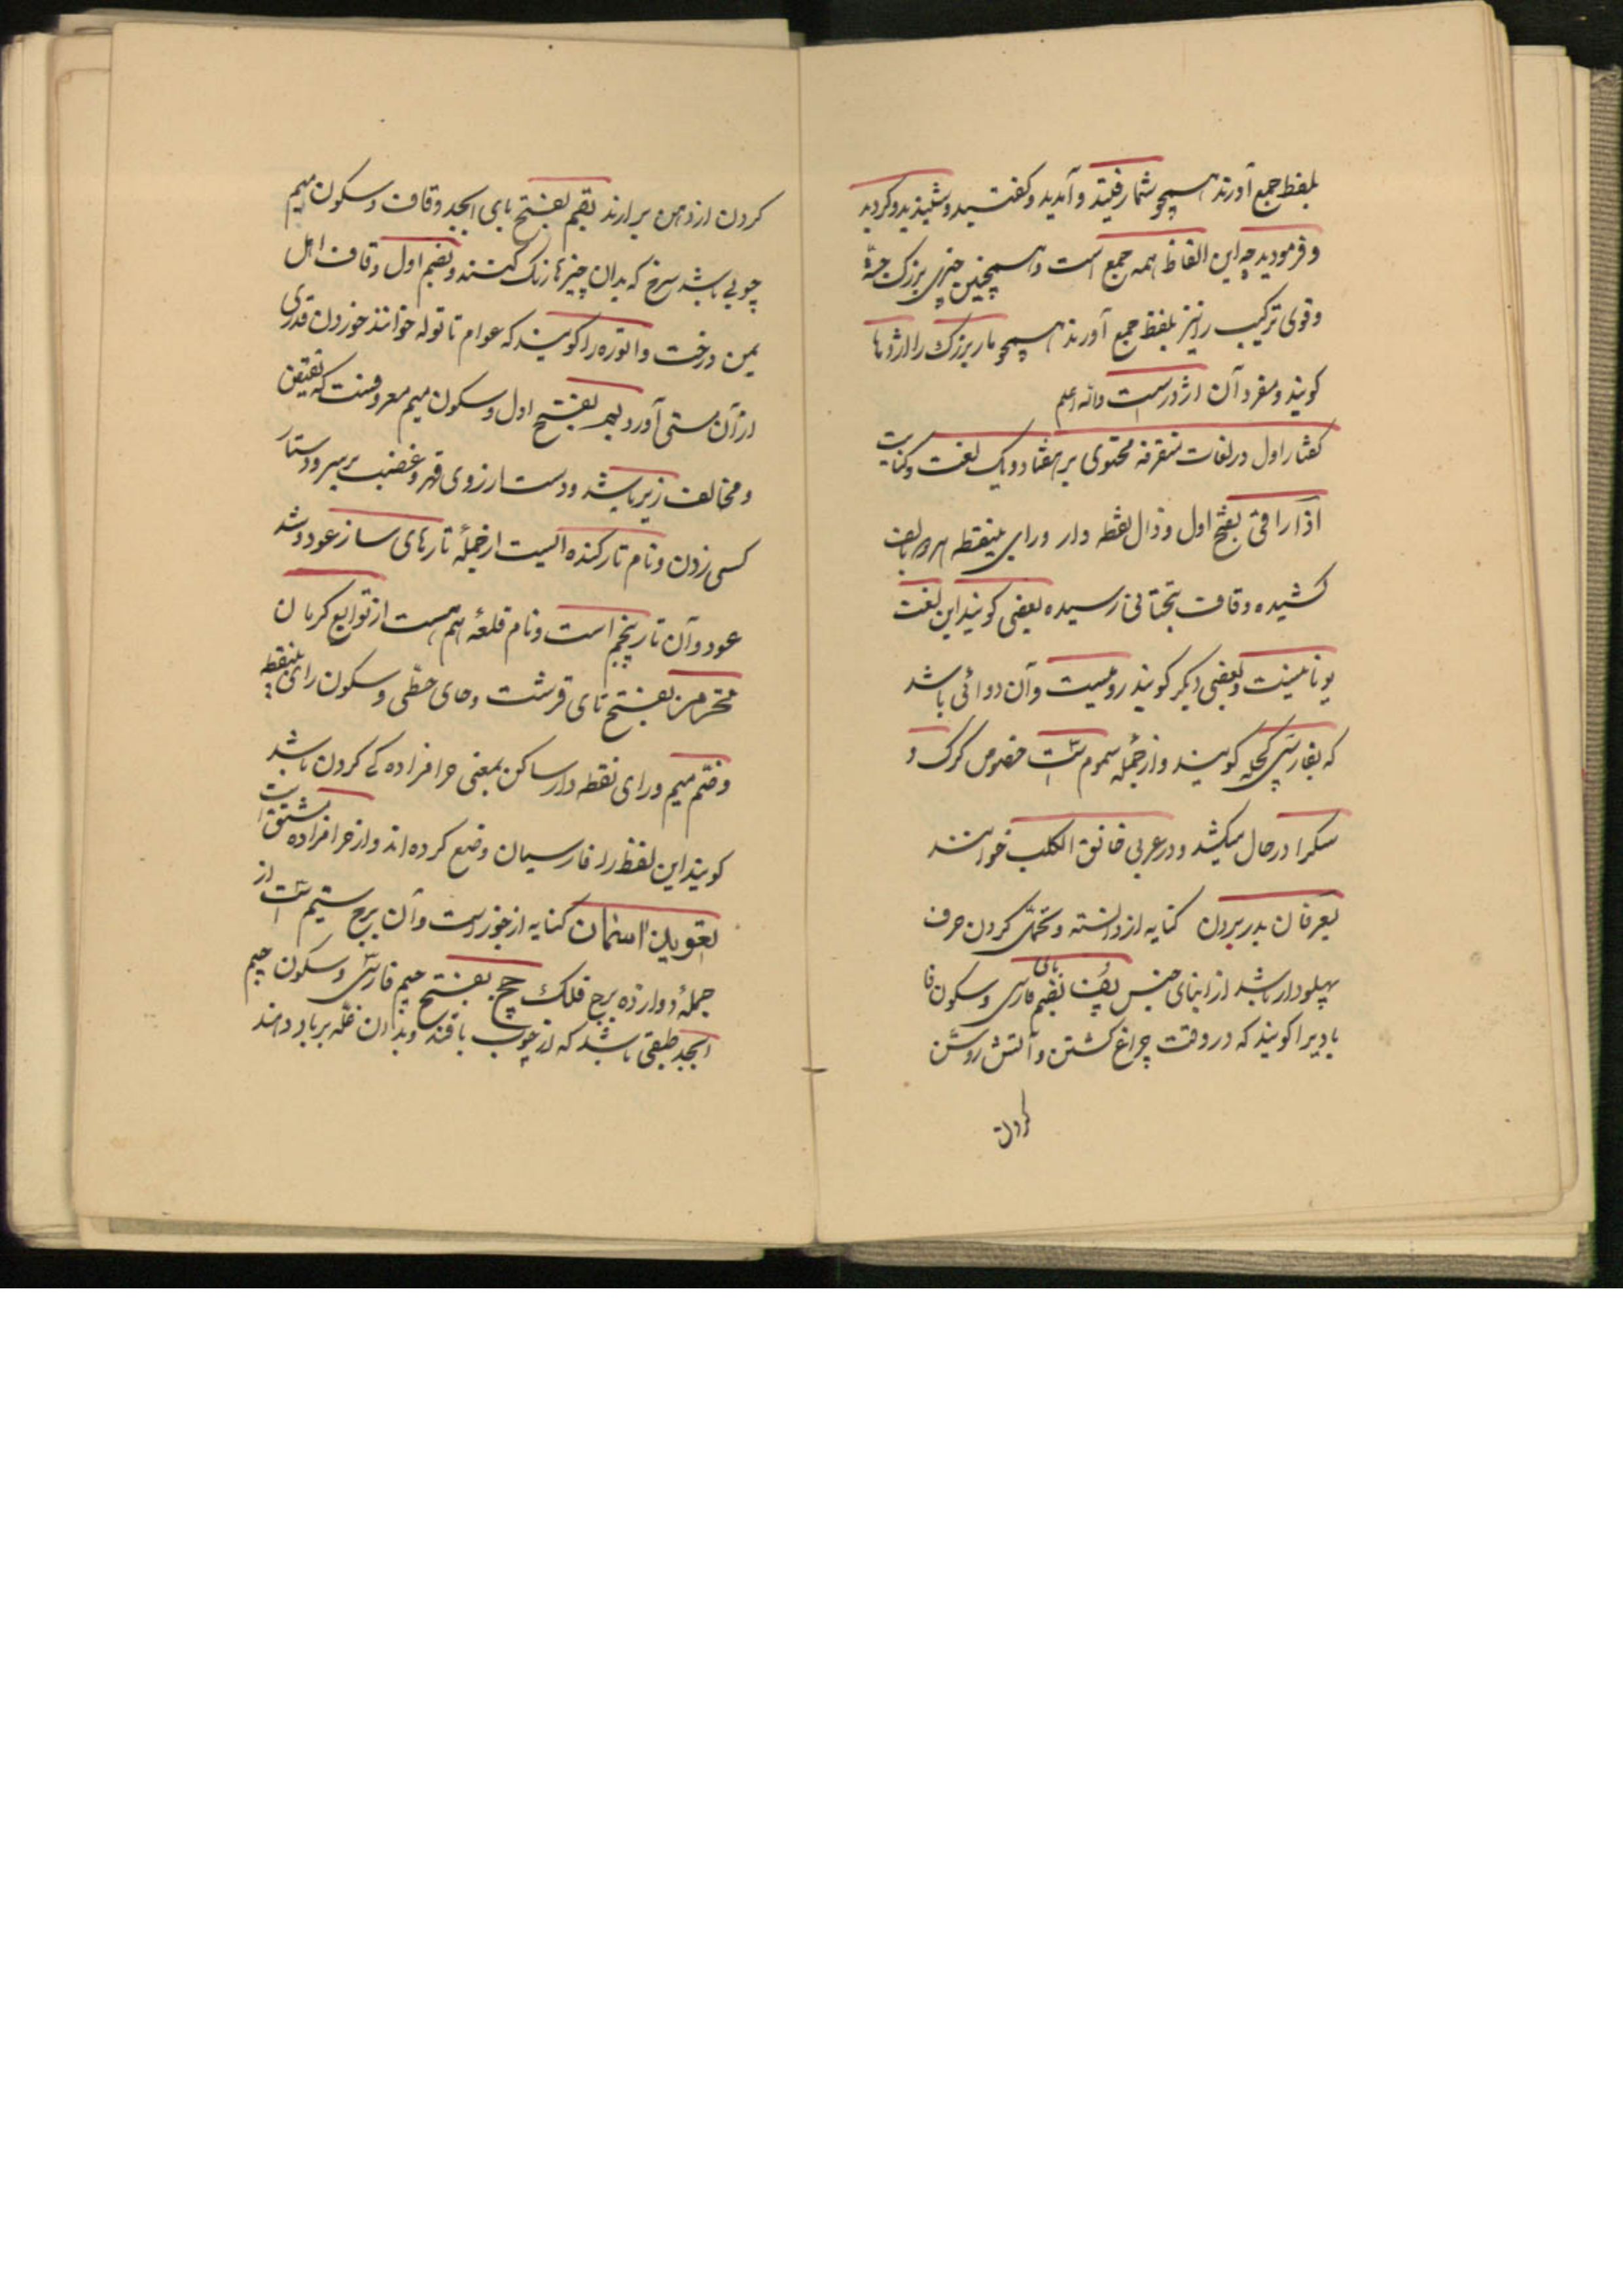 بلفظ جمع آورند همچو شما رفتید و آمدید و گفتید و شنیدید و کردید
و فرمودید چه این الفاظ همه جمع است و همچنین چیزی بزرک جثه
و قوی ترکیب را نیز بلفظ جمع آورند همچو مار بزرک را اژدها
کویند و مفرد آن اژدرست والله اعلم
کفتار اول در لغات متفرقه محتوی بر هفتاد و یک لغت و کنایت
اذاراقی بفتح اول و ذال نقطه دار و رای بینقطه هر دو بالف
کشیده و قاف بتحتانی رسیده بعضی کویند این لغت
یونانیست و بعضی دیکر کویند رومیست و آن دوائی باشد
که بفارسی کچله کویند و از جمله سموم است خصوص کرک و
سک را در حال میکشد و در عربی خانق الکلب خوانند
بعرفان بدر بردن کنایه از دانسته و تحمل کردن حرف
پهلودار باشد از ابنای جنس پف بضم بای فارسی و سکون فا
بادیرا کویند که در وقت چراغ کشتن و آتش روشن
کردن
کردن از دهن برارند بقم بفتح بای ابجد و قاف و سکون میم
چوبی باشد سرخ که بدان چیزها رنک کنند و بضم اول و قاف اهل
یمن درخت و اتوره را کویند که عوام تاتوله خوانند خوردن قدری
از آن مستی آورد بم بفتح اول و سکون میم معروفست که نقیض
و مخالف زیر باشد و دست از روی قهر و غضب بر سر و دستار
کسی زدن و نام تار کنده ایست از جمله تارهای ساز عود و شد
عود و آن تار پنجم است و نام قلعه هم هست از توابع کرمان
تحرمز بفتح تای قرشت و حای حطی و سکون رای بینقطه
و ضم میم و رای نقطه دار ساکن بمعنی حرامزاده کی کردن باشد
کویند این لفظ را فارسیان وضع کرده اند و از حرامزاده مشتق است
تعوید آسمان کنایه از جوزاست و آن برج سیم است از
جمله دوازده برج فلک چج بفتح جیم فارسی و سکون جیم
ابجد طبقی باشد که از چوب بافند و بدان غله بر باد دهند